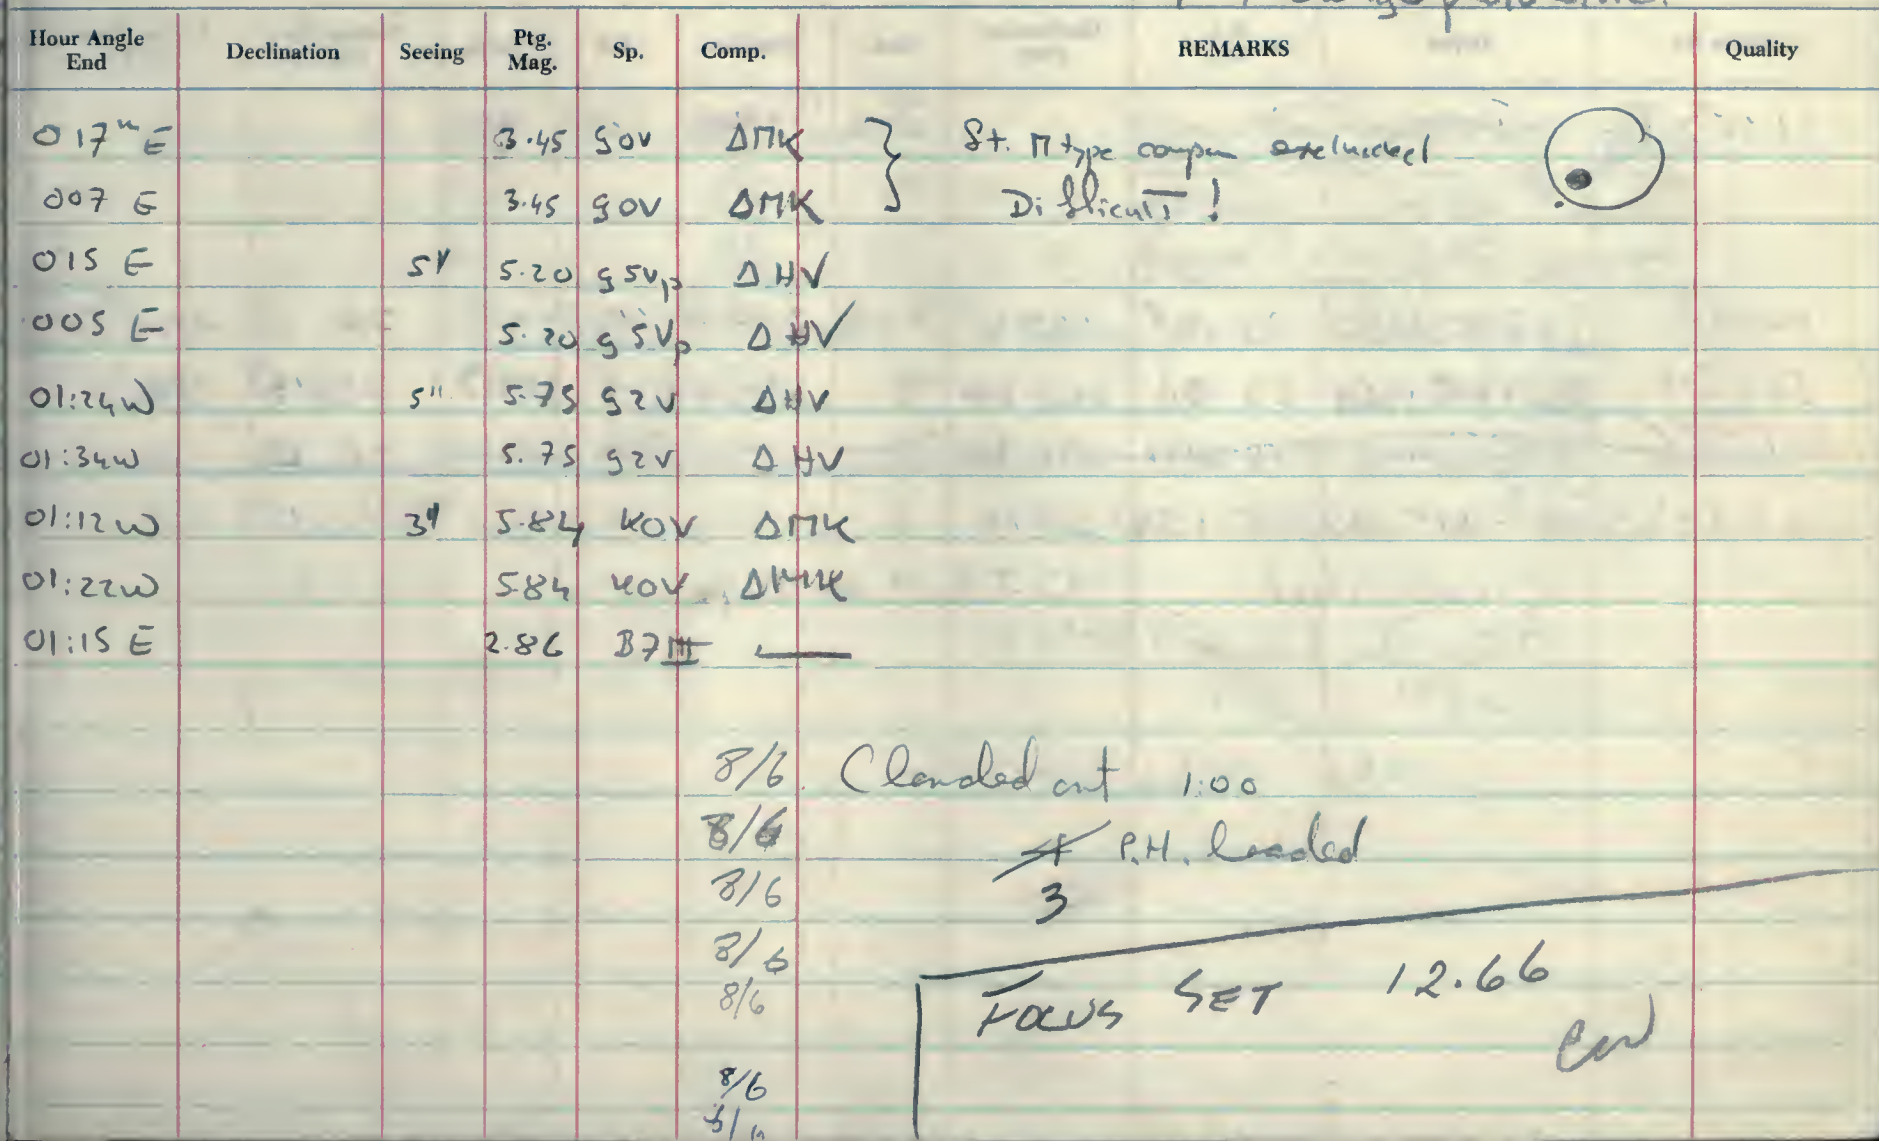 Hour Angle End Declination Seeing Ptg. Mag. Sp. Comp. REMARKS Quality
0 17ᵐ E 3.45 g0v ΔMK St. M type compan excluded
007 E 3.45 g0v ΔMK Difficult!
015 E 5" 5.20 g5vp ΔHV
005 E 5.20 g5vp ΔHV
01:24W 5" 5.75 g2v ΔHV
01:34W 5.75 g2v ΔHV
01:12W 3" 5.84 K0V ΔMK
01:22W 5.84 K0V ΔMK
01:15 E 2.86 B7III —
8/6 Clouded out 1:00
8/6 P.H. loaded
8/6 3
8/6
8/6 FOCUS SET 12.66
8/6